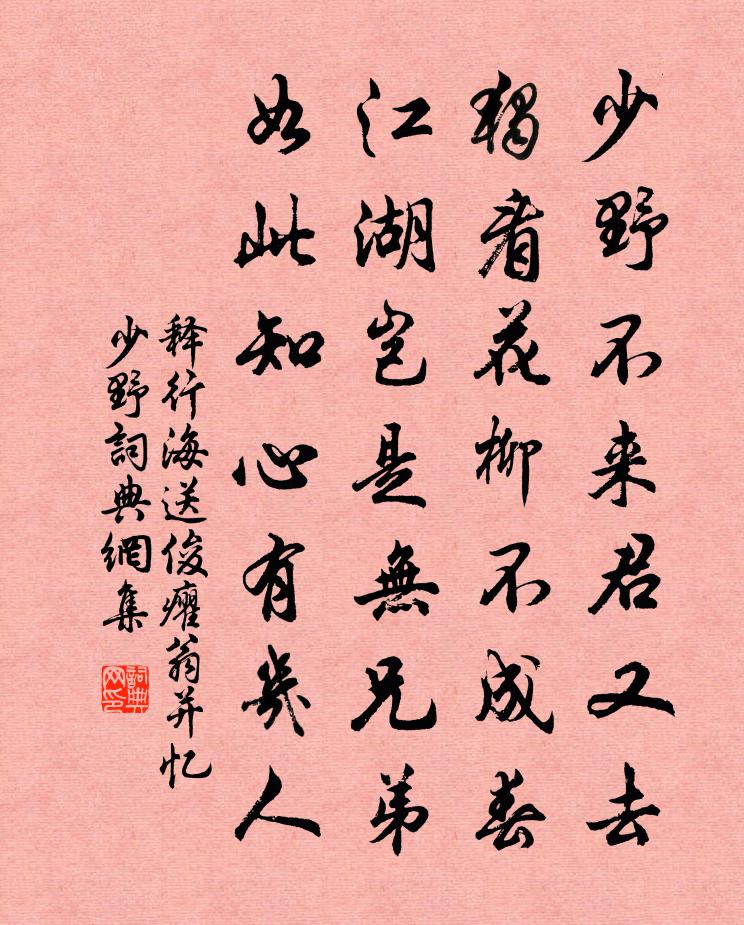 少野不来君又去
獨看花柳不成春
江湖豈是無兄弟
如此知心有幾人
释行海送俊癯翁并忆
少野詞典網集
詞典网印